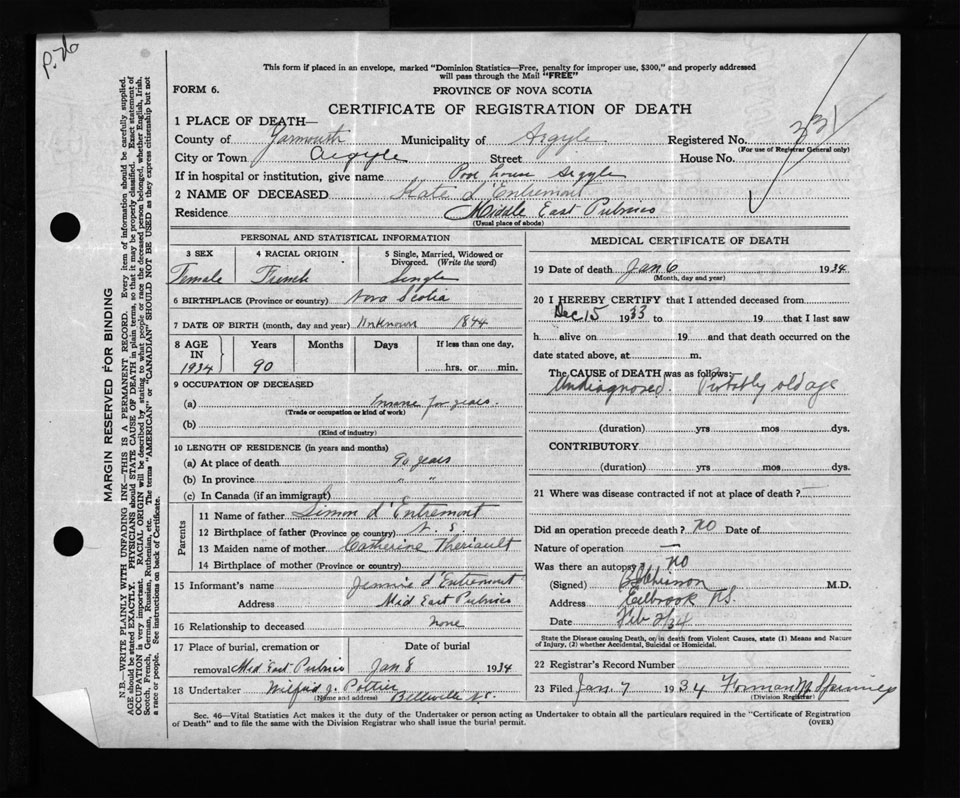 P. 26
This form if placed in an envelope, marked "Dominion Statistics—Free, penalty for improper use, $300," and properly addressed
will pass through the Mail "FREE"
FORM 6.
PROVINCE OF NOVA SCOTIA
CERTIFICATE OF REGISTRATION OF DEATH
1 PLACE OF DEATH—
County of Yarmouth Municipality of Argyle Registered No. 331
(For use of Registrar General only)
City or Town Argyle Street House No.
If in hospital or institution, give name Poor house Argyle
2 NAME OF DECEASED Katie d'Entremont
Residence Middle East Pubnico
(Usual place of abode)
PERSONAL AND STATISTICAL INFORMATION
3 SEX 4 RACIAL ORIGIN 5 Single, Married, Widowed or
Divorced. (Write the word)
Female French Single
6 BIRTHPLACE (Province or country) Nova Scotia
7 DATE OF BIRTH (month, day and year) Unknown 1844
8 AGE IN Years Months Days If less than one day,
1934 90 hrs. or min.
9 OCCUPATION OF DECEASED
(a) Insane for years.
(Trade or occupation or kind of work)
(b)
(Kind of industry)
10 LENGTH OF RESIDENCE (in years and months)
(a) At place of death 90 years
(b) In province " "
(c) In Canada (if an immigrant)
Parents
11 Name of father Simon d'Entremont
12 Birthplace of father (Province or country) N. S.
13 Maiden name of mother Catherine Theriault
14 Birthplace of mother (Province or country)
15 Informant's name Jennie d'Entremont
Address Mid East Pubnico
16 Relationship to deceased None
17 Place of burial, cremation or Date of burial
removal Mid East Pubnico Jan 8 1934
18 Undertaker Wilfrid J. Pottier
(Name and address) Belleville N.S.
MEDICAL CERTIFICATE OF DEATH
19 Date of death Jan 6 1934
(Month, day and year)
20 I HEREBY CERTIFY that I attended deceased from
Dec. 15 1933 to 19 that I last saw
h alive on 19 and that death occurred on the
date stated above, at m.
The CAUSE of DEATH was as follows:—
Undiagnosed. Probably old age
(duration) yrs mos dys.
CONTRIBUTORY
(duration) yrs mos dys.
21 Where was disease contracted if not at place of death? —
Did an operation precede death? No Date of
Nature of operation —
Was there an autopsy? No
(Signed) M.D.
Address Eelbrook N.S.
Date Feb 2/34
State the Disease causing Death, or, in death from Violent Causes, state (1) Means and Nature
of Injury, (2) whether Accidental, Suicidal or Homicidal.
22 Registrar's Record Number
23 Filed Jan. 7 1934 Forman
(Division Registrar)
Sec. 46—Vital Statistics Act makes it the duty of the Undertaker or person acting as Undertaker to obtain all the particulars required in the "Certificate of Registration
of Death" and to file the same with the Division Registrar who shall issue the burial permit. (OVER)
MARGIN RESERVED FOR BINDING
N.B.—WRITE PLAINLY WITH UNFADING INK—THIS IS A PERMANENT RECORD. Every item of information should be carefully supplied.
AGE should be stated EXACTLY. PHYSICIANS should STATE CAUSE OF DEATH in plain terms, so that it may be properly classified. Exact statement of
OCCUPATION is very important. RACIAL ORIGIN will be described by stating to what people or race the deceased person belonged, whether English, Irish,
Scotch, French, German, Russian, Ruthenian, etc. The terms "AMERICAN" or "CANADIAN" SHOULD NOT BE USED as they express citizenship but not
a race or people. See instructions on back of Certificate.